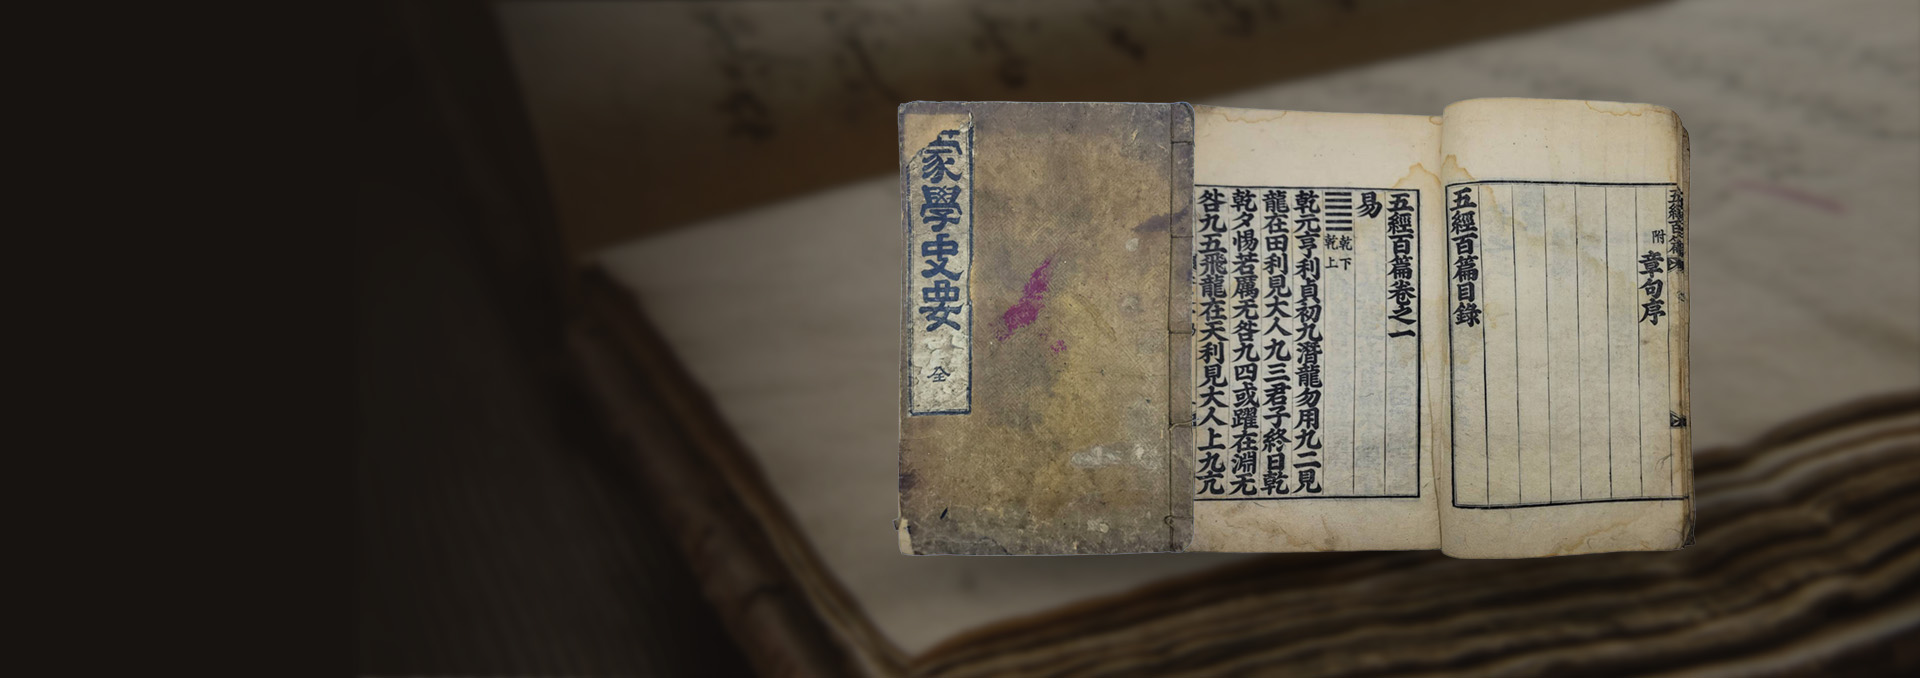 蒙學史要 全
附 章句序
五經百篇目錄
五經百篇卷之一
易
乾下
乾上
乾元亨利貞初九潛龍勿用九二見
龍在田利見大人九三君子終日乾
乾夕惕若厲无咎九四或躍在淵无
咎九五飛龍在天利見大人上九亢